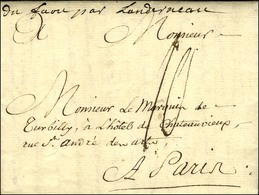 du faou par Landerneau
A Monsieur
Monsieur Le Marquis de
Turbilly, à L'hôtel de Chateauvieux
rue St. André des arts
A Paris